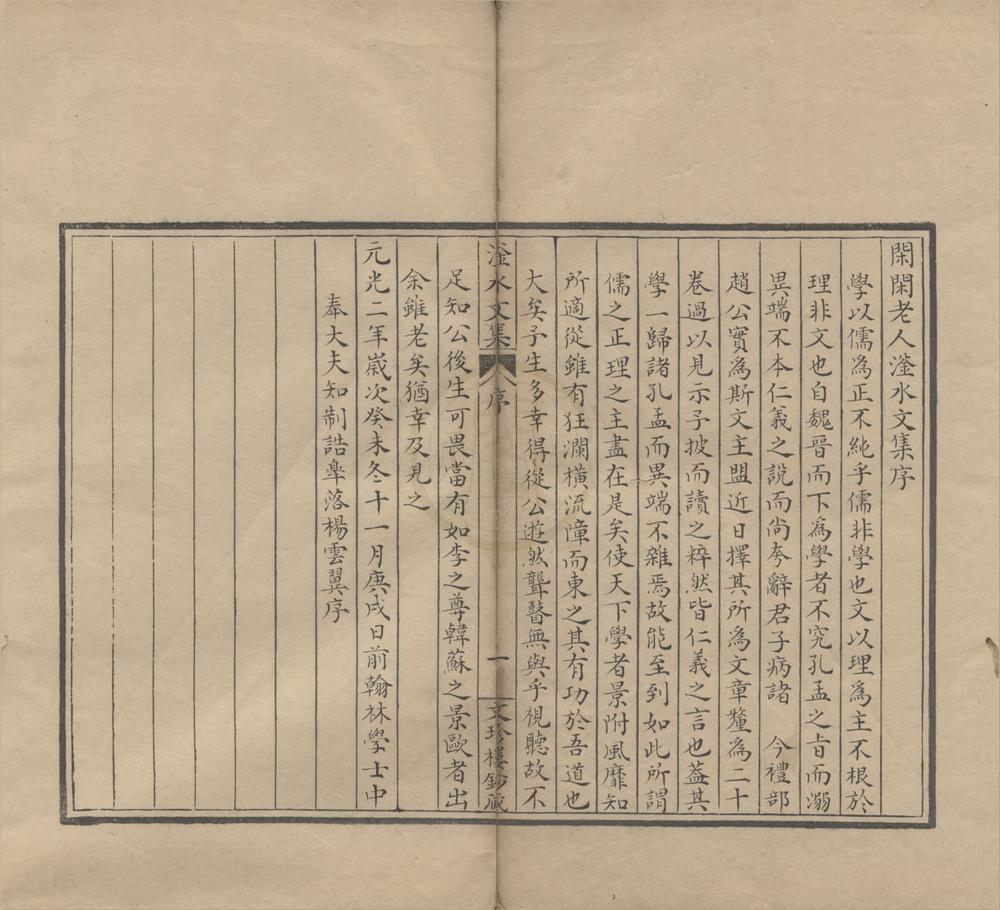 閑閑老人滏水文集序
學以儒為正不純乎儒非學也文以理為主不根於
理非文也自魏晉而下為學者不究孔孟之旨而溺
異端不本仁義之說而尙夸辭君子病諸　今禮部
趙公實為斯文主盟近日擇其所為文章釐為二十
卷過以見示予披而讀之粹然皆仁義之言也葢其
學一歸諸孔孟而異端不雜焉故能至到如此所謂
儒之正理之主盡在是矣使天下學者景附風靡知
所適從雖有狂瀾橫流障而東之其有功於吾道也
大矣予生多幸得從公遊然聾瞽無與乎視聽故不
滏水文集
序
一
文珍樓鈔藏
足知公後生可畏當有如李之尊韓蘇之景歐者出
余雖老矣猶幸及見之
元光二年嵗次癸未冬十一月庚戌日前翰林學士中
奉大夫知制誥臯落楊雲翼序